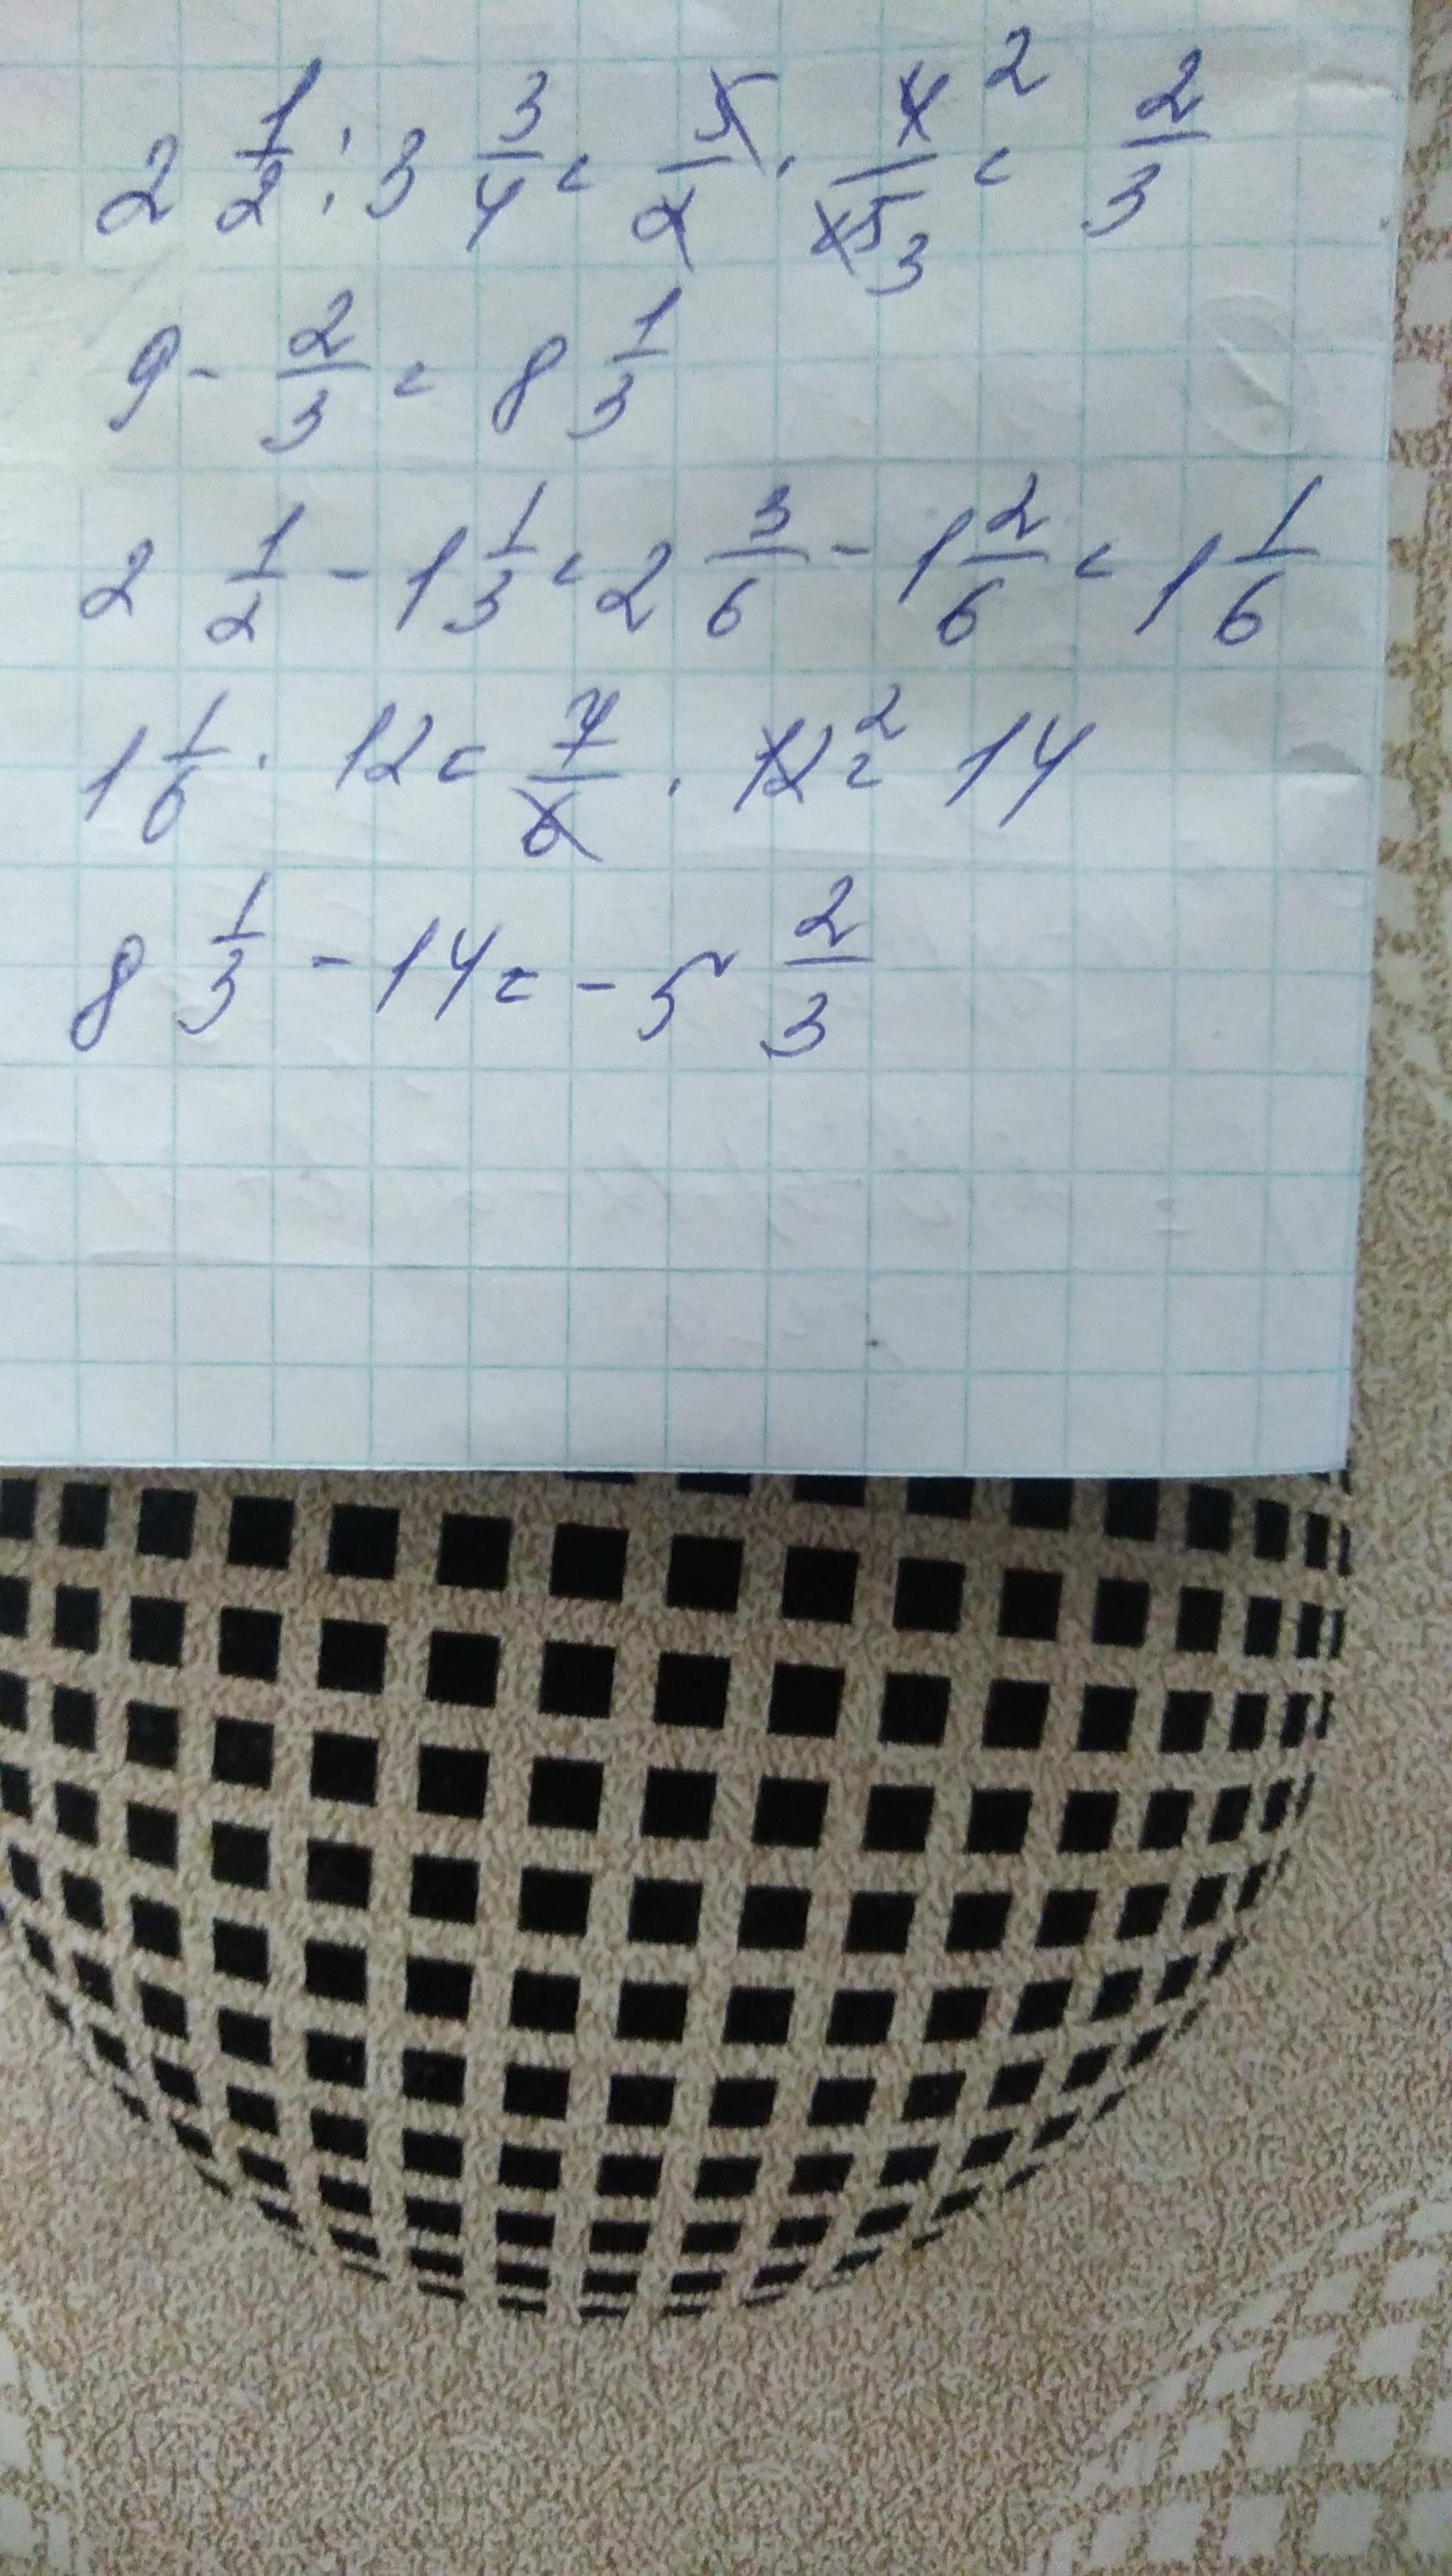 2 1/2 : 3 3/4 = 5/2 · 4/15 2 3 = 2/3
9 - 2/3 = 8 1/3
2 1/2 - 1 1/3 = 2 3/6 - 1 2/6 = 1 1/6
1 1/6 · 12 = 7/6 · 12 2 = 14
8 1/3 - 14 = - 5 2/3